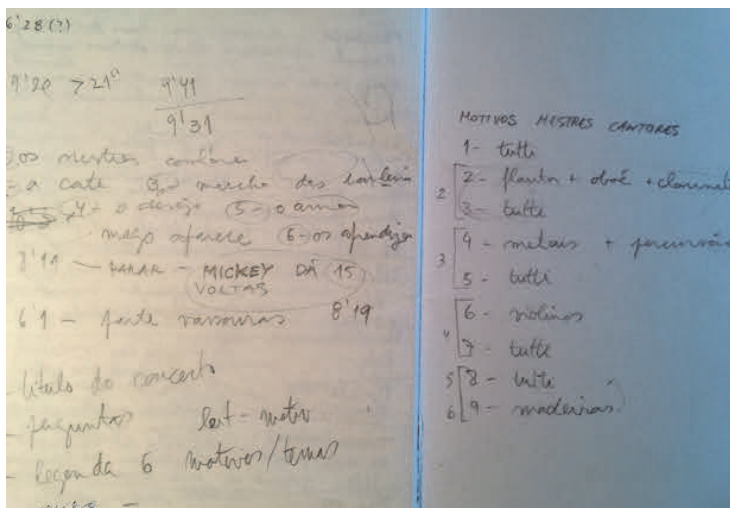 6'28 (?)
9'20 > 21"  9'41
9'31
os mestres cantores
- a corte 3 - marcha dos
4 - o desejo 5 - o amor
mago aparece 6 - os aprendizes
PARAR - MICKEY DÁ 15
VOLTAS
6'1 - parte vassouras 8'19
- título do concerto
- perguntas leit-motiv
- legenda 6 motivos/temas
MOTIVOS MESTRES CANTORES
1 - tutti
2 [ 2 - flautas + oboé + clarinete
3 - tutti
3 [ 4 - metais + percussão
5 - tutti
4 [ 6 - violinos
7 - tutti
5 [ 8 - tutti
6 [ 9 - madeiras